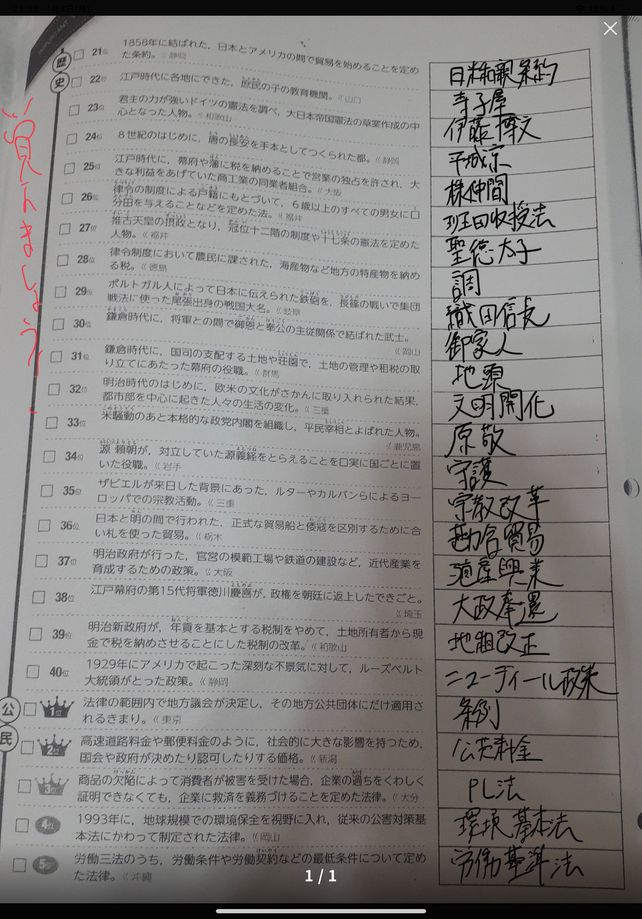 歴史
21位 1858年に結ばれた，日本とアメリカの間で貿易を始めることを定め
た条約。《静岡
日米和親条約
22位 江戸時代に各地にできた，庶民の子の教育機関。《山口
寺子屋
23位 君主の力が強いドイツの憲法を調べ，大日本帝国憲法の草案作成の中
心となった人物。《和歌山
伊藤博文
24位 8世紀のはじめに，唐の長安を手本としてつくられた都。《静岡
平成京
25位 江戸時代に，幕府や藩に税を納めることで営業の独占を許され，大
きな利益をあげていた商工業の同業者組合。《大阪
株仲間
26位 律令の制度による戸籍にもとづいて，6歳以上のすべての男女に口
分田を与えることなどを定めた法。《福井
班田収授法
27位 推古天皇の摂政となり，冠位十二階の制度や十七条の憲法を定めた
人物。《福井
聖徳太子
28位 律令制度において農民に課された，海産物など地方の特産物を納め
る税。《徳島
調
29位 ポルトガル人によって日本に伝えられた鉄砲を，長篠の戦いで集団
戦法に使った尾張出身の戦国大名。《岐阜
織田信長
30位 鎌倉時代に，将軍との間で御恩と奉公の主従関係で結ばれた武士。
《岡山
御家人
31位 鎌倉時代に，国司の支配する土地や荘園で，土地の管理や租税の取
り立てにあたった幕府の役職。《群馬
地頭
32位 明治時代のはじめに，欧米の文化がさかんに取り入れられた結果，
都市部を中心に起きた人々の生活の変化。《三重
文明開化
33位 米騒動のあと本格的な政党内閣を組織し，平民宰相とよばれた人物。
《鹿児島
原敬
34位 源頼朝が，対立していた源義経をとらえることを口実に国ごとに置
いた役職。《岩手
守護
35位 ザビエルが来日した背景にあった，ルターやカルバンらによるヨー
ロッパでの宗教活動。《三重
宗教改革
36位 日本と明の間で行われた，正式な貿易船と倭寇を区別するために合
い札を使った貿易。《栃木
勘合貿易
37位 明治政府が行った，官営の模範工場や鉄道の建設など，近代産業を
育成するための政策。《大阪
殖産興業
38位 江戸幕府の第15代将軍徳川慶喜が，政権を朝廷に返上したできごと。
《埼玉
大政奉還
39位 明治新政府が，年貢を基本とする税制をやめて，土地所有者から現
金で税を納めさせることにした税制の改革。《和歌山
地租改正
40位 1929年にアメリカで起こった深刻な不景気に対して，ルーズベルト
大統領がとった政策。《静岡
ニューディール政策
公民
1位 法律の範囲内で地方議会が決定し，その地方公共団体にだけ適用さ
れるきまり。《東京
条例
2位 高速道路料金や郵便料金のように，社会的に大きな影響を持つため，
国会や政府が決めたり認可したりする価格。《新潟
公共料金
3位 商品の欠陥によって消費者が被害を受けた場合，企業の過ちをくわしく
証明できなくても，企業に救済を義務づけることを定めた法律。《大分
PL法
4位 1993年に，地球規模での環境保全を視野に入れ，従来の公害対策基
本法にかわって制定された法律。《岡山
環境基本法
5位 労働三法のうち，労働条件や労働契約などの最低条件について定め
た法律。《沖縄
労働基準法
1 / 1